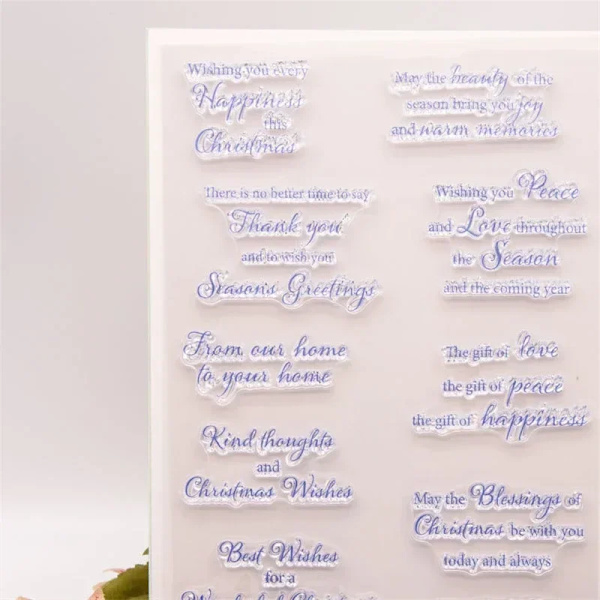 Wishing you every
Happiness
this
Christmas
There is no better time to say
Thank you
and to wish you
Season's Greetings
From our home
to your home
Kind thoughts
and
Christmas Wishes
Best Wishes
for a
Wonderful Christmas
May the beauty of the
season bring you joy
and warm memories
Wishing you Peace
and Love throughout
the Season
and the coming year
The gift of love
the gift of peace
the gift of happiness
May the Blessings of
Christmas be with you
today and always